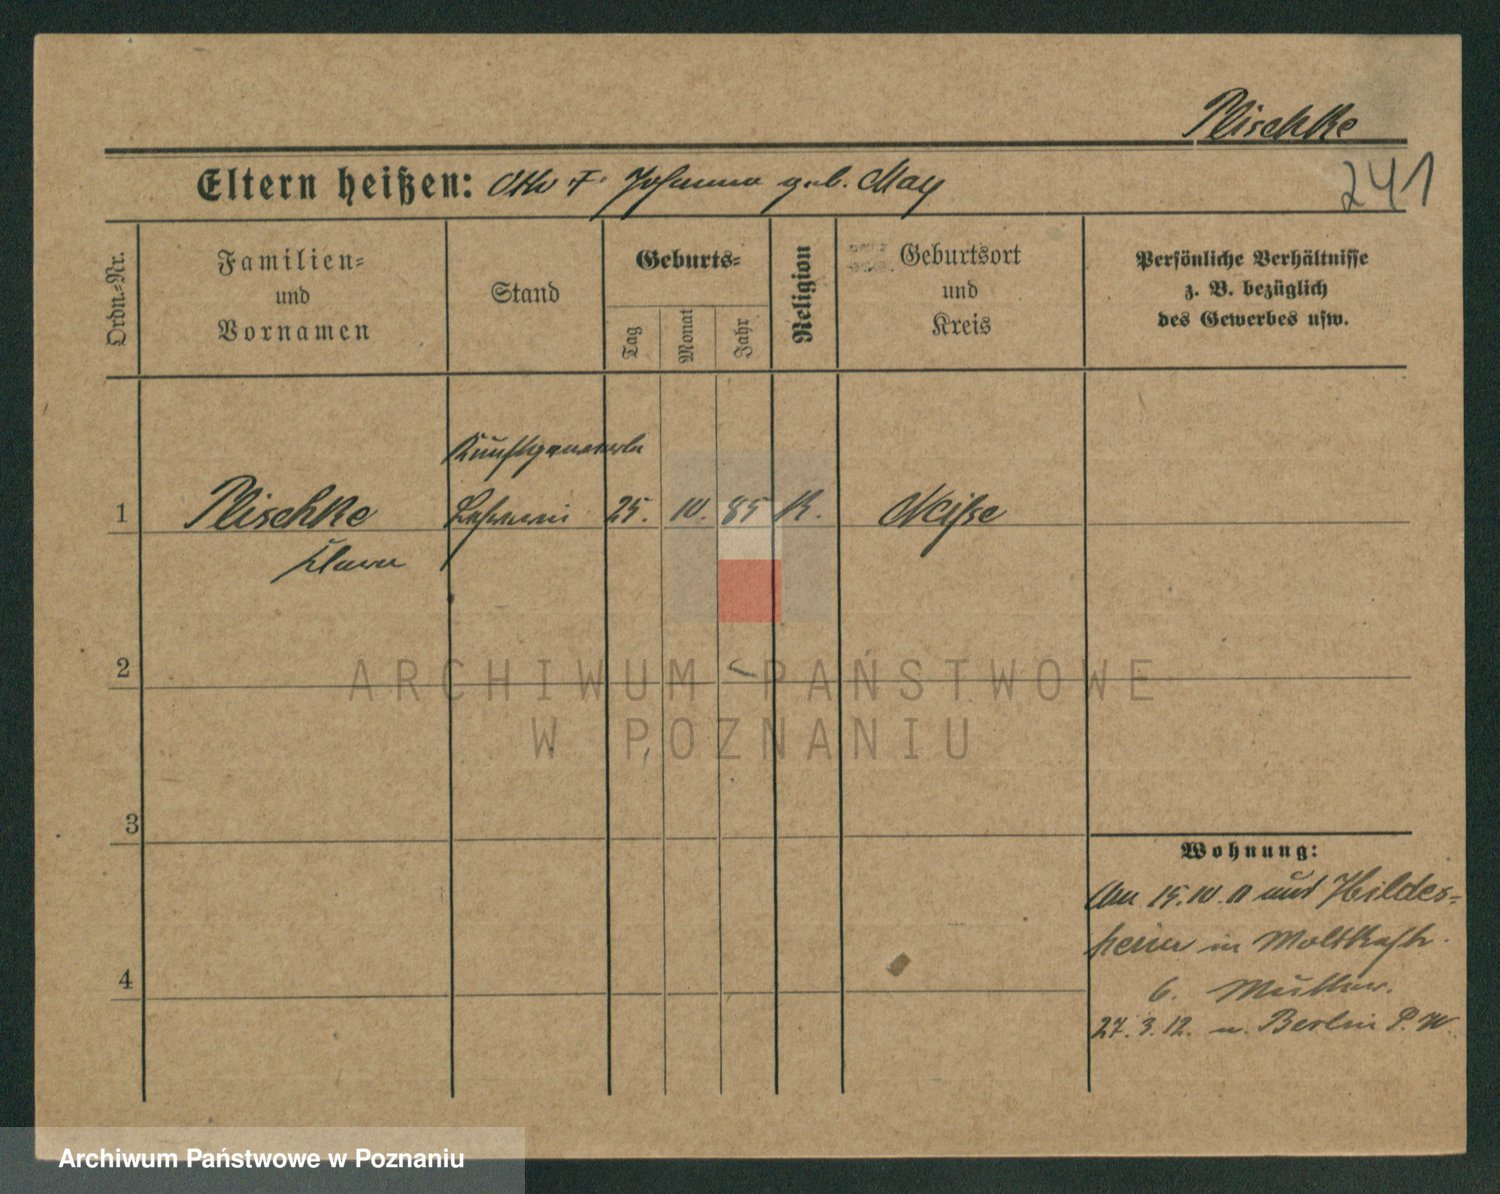 Plischke
241
Eltern heißen: Otto F. Johanna geb. May
Ordn.-Nr.
Familien-
und
Vornamen
Stand
Geburts-
Tag
Monat
Jahr
Religion
Geburtsort
und
Kreis
Persönliche Verhältnisse
z. B. bezüglich
des Gewerbes usw.
Kunstgewerbe
1 Plischke Lehrerin 25. 10. 85 K. Neiße
Clara
2
3
4
Wohnung:
Am 15.10.11 aus Hildes-
heim in Moltkestr.
6.
27.3.12. n. Berlin P. W.
ARCHIWUM PAŃSTWOWE
W POZNANIU
Archiwum Państwowe w Poznaniu